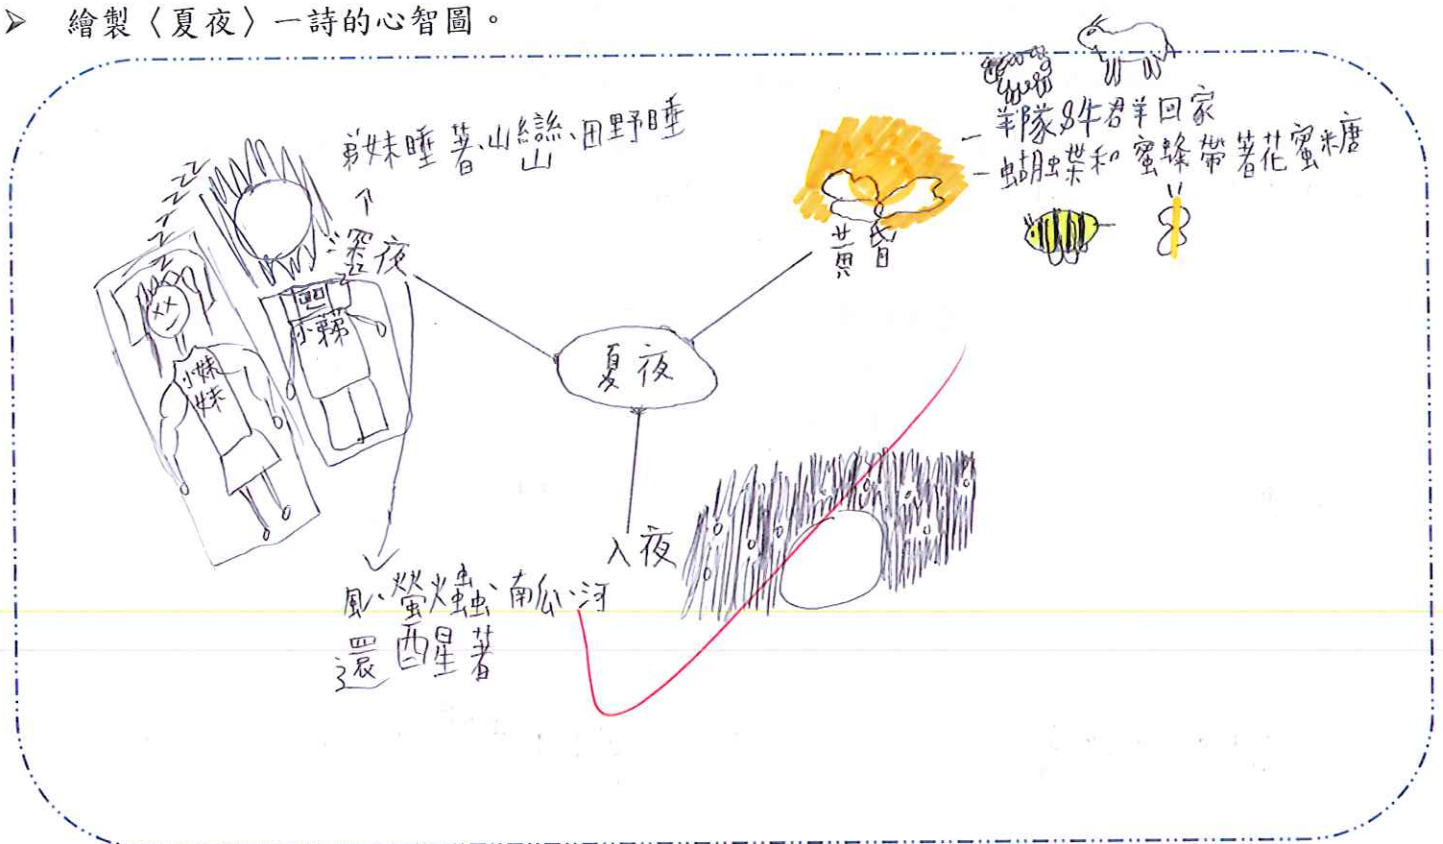 ➢ 繪製〈夏夜〉一詩的心智圖。
弟妹睡著、山巒、田野睡
深夜
小妹妹
小弟弟
夏夜
黃昏
- 羊隊&牛群羊回家
- 蝴蝶和蜜蜂帶著花蜜糖
入夜
風、螢火蟲、南瓜、河
還醒著
zzzzz